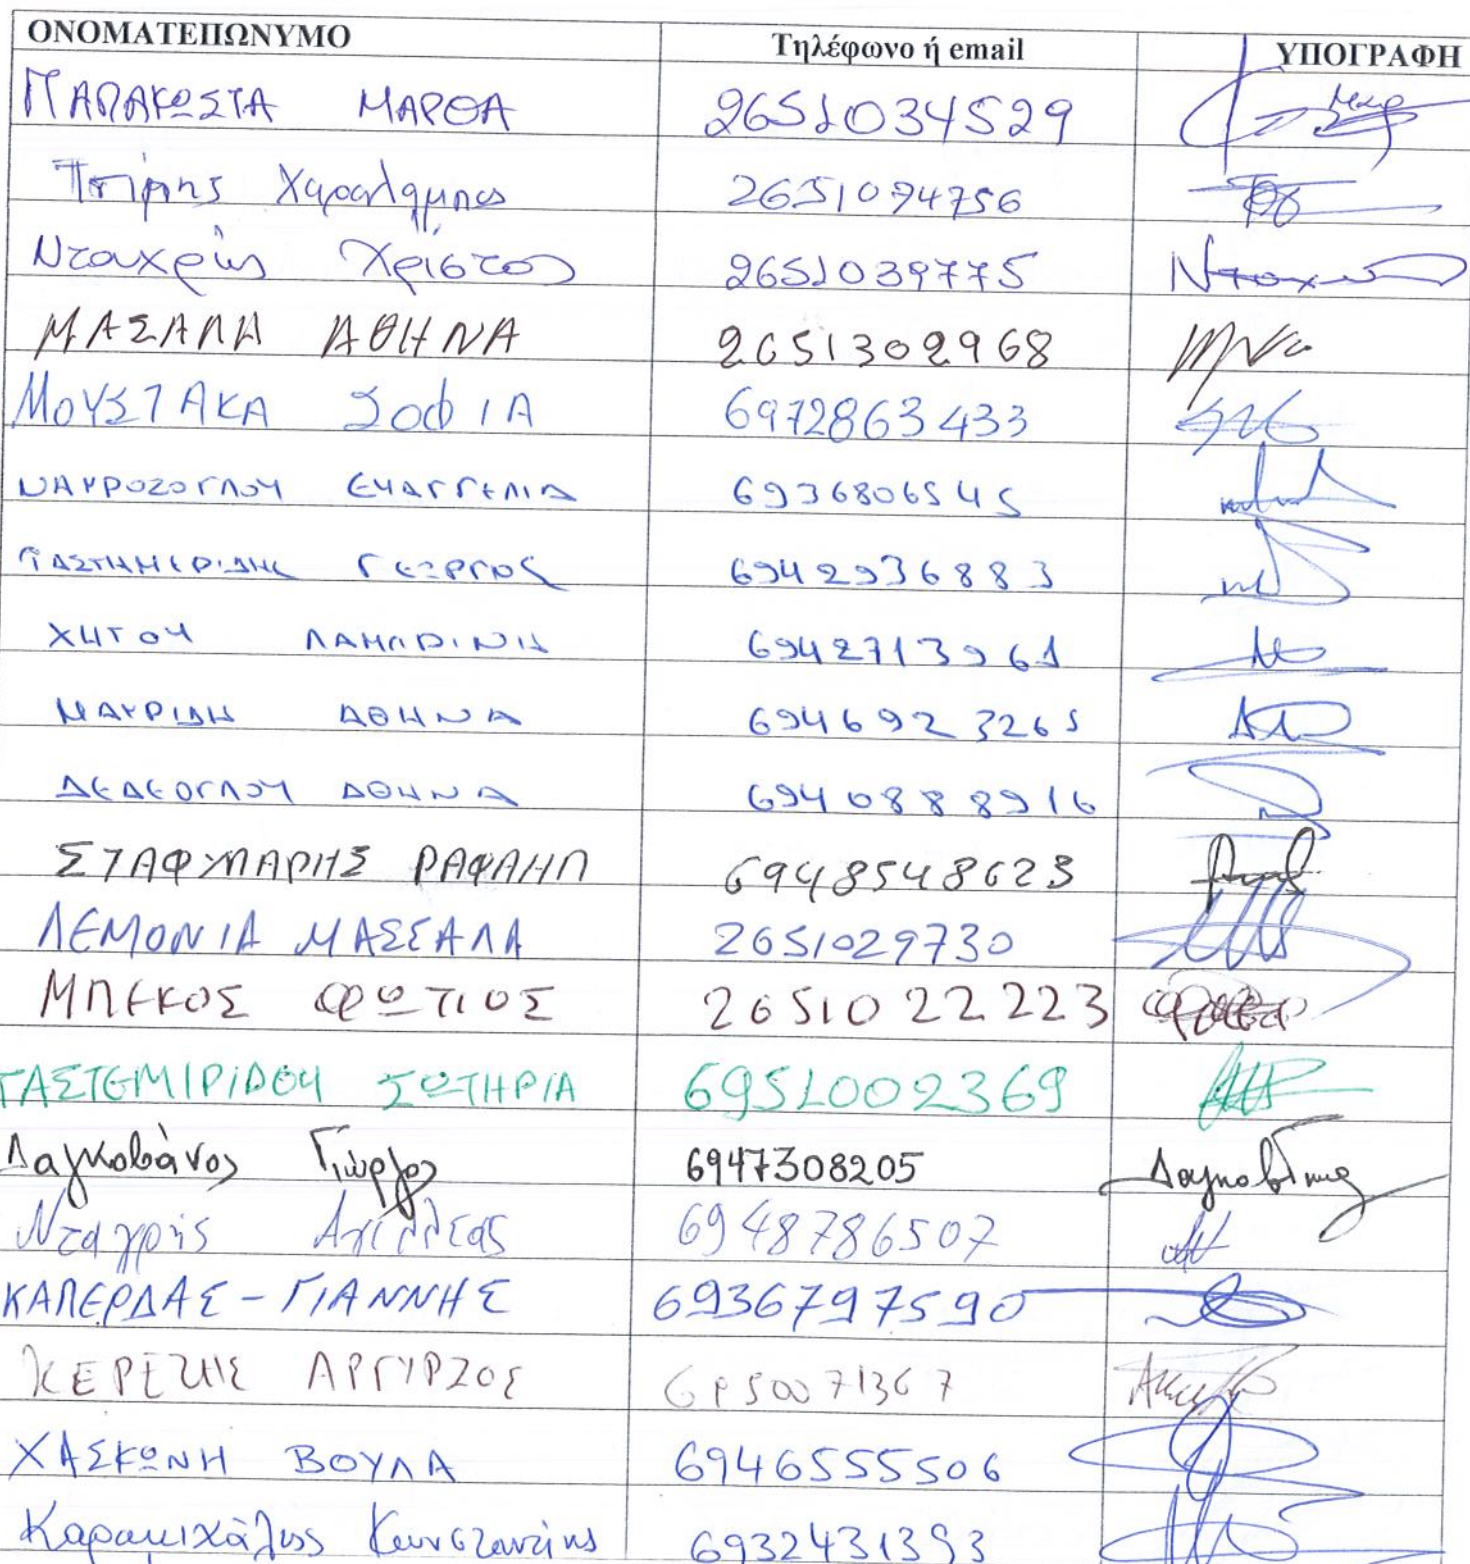 ΟΝΟΜΑΤΕΠΩΝΥΜΟ Τηλέφωνο ή email ΥΠΟΓΡΑΦΗ
ΠΑΠΑΚΩΣΤΑ ΜΑΡΘΑ 2651034529
2651094756
Χρίστος 2651039775
ΜΑΣΑΛΑ ΑΘΗΝΑ 2651302968
ΜΟΥΣΤΑΚΑ ΣΟΦΙΑ 6972863433
ΕΥΑΓΓΕΛΙΑ 6936806545
ΓΕΩΡΓΙΟΣ 6942936883
ΧΗΤΟΥ ΛΑΜΠΡΙΝΗ 6942713961
ΜΑΥΡΙΔΗ ΑΘΗΝΑ 6946923265
ΔΕΔΕΟΓΛΟΥ ΑΘΗΝΑ 6940888916
ΣΤΑΦΥΛΑΡΗΣ ΡΑΦΑΗΛ 6948548623
ΛΕΜΟΝΙΑ ΜΑΣΣΑΛΑ 2651029730
ΜΠΕΚΟΣ ΦΩΤΙΟΣ 2651022223
ΤΑΣΤΕΜΙΡΙΔΟΥ ΣΩΤΗΡΙΑ 6951002369
Λαγκοβάνος Γιώργος 6947308205
6948786507
ΚΑΠΕΡΔΑΣ - ΓΙΑΝΝΗΣ 6936797590
ΚΕΡΕΖΗΣ
ΧΑΣΚΩΝΗ ΒΟΥΛΑ 6946555506
Καραμιχάλης Κωνσταντίνος 6932431393